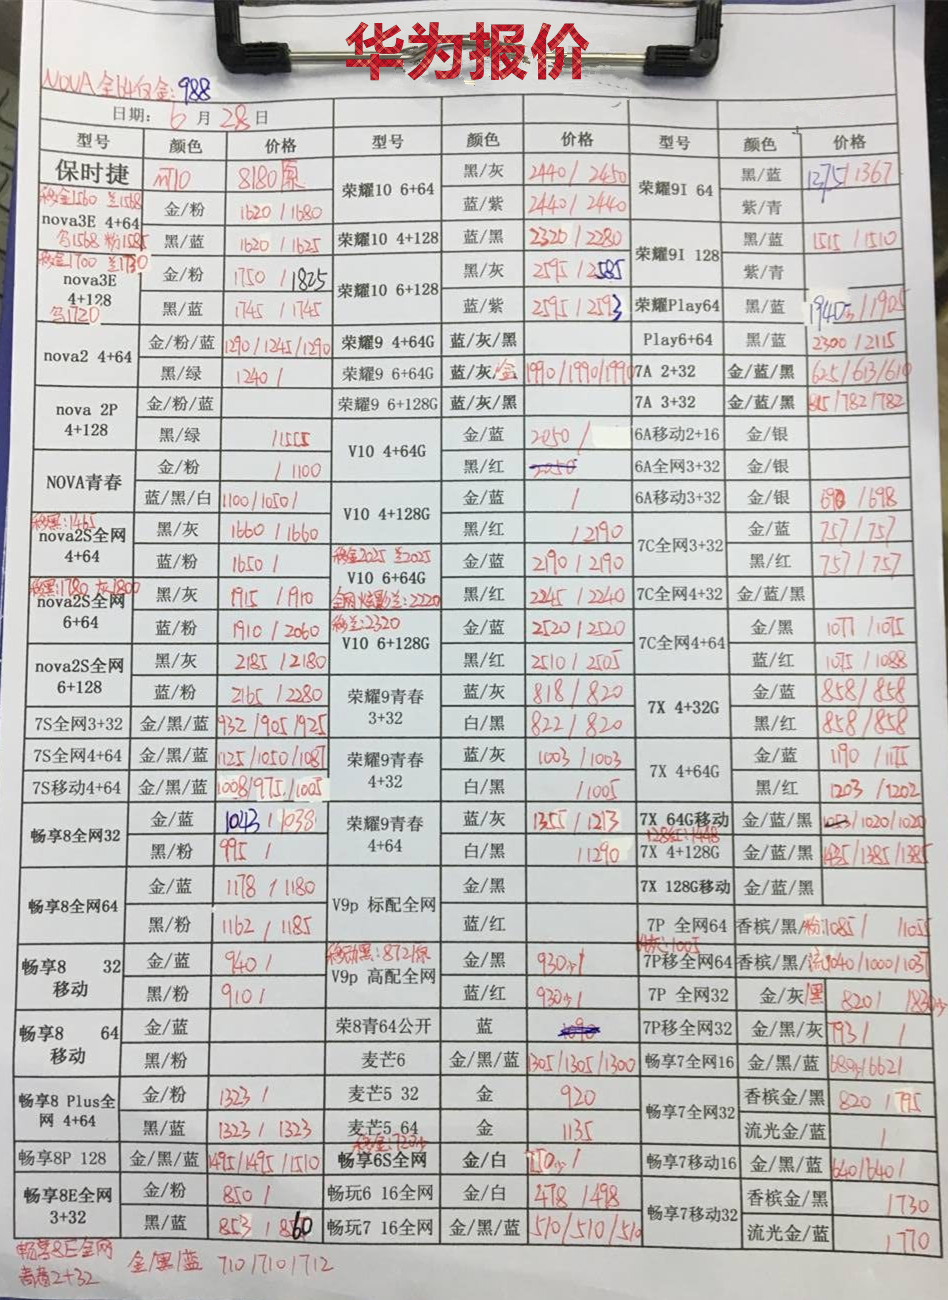 华为报价
NOVA全64白金:988
日期: 6月28日
型号 颜色 价格 型号 颜色 价格 型号 颜色 价格
保时捷 8180原 荣耀10 6+64 黑/灰 2440/2450 荣耀9I 64 黑/蓝 1375/1367
移金1560 兰1568
nova3E 4+64 金/粉 1620/1680 蓝/紫 2440/2440 紫/青
乌1568 粉1585 黑/蓝 1620/1625 荣耀10 4+128 蓝/黑 2320/2280 荣耀9I 128 黑/蓝 1515/1510
移金1700 兰1730
nova3E 4+128 金/粉 1750/1825 荣耀10 6+128 黑/灰 2595/2585 紫/青
乌1720 黑/蓝 1745/1745 蓝/紫 2595/2593 荣耀Play64 黑/蓝 /1905
nova2 4+64 金/粉/蓝 1290/1245/1290 荣耀9 4+64G 蓝/灰/黑 Play6+64 黑/蓝 2300/2115
黑/绿 1240/ 荣耀9 6+64G 蓝/灰/金 1990/1990/1990 7A 2+32 金/蓝/黑 625/613/610
nova 2P 4+128 金/粉/蓝 荣耀9 6+128G 蓝/灰/黑 7A 3+32 金/蓝/黑 /782/782
黑/绿 /1555 V10 4+64G 金/蓝 2050/ 6A移动2+16 金/银
NOVA青春 金/粉 /1100 黑/红 2050 6A全网3+32 金/银
蓝/黑/白 1100/1050/ V10 4+128G 金/蓝 / 6A移动3+32 金/银 /698
移黑:1465
nova2S全网 4+64 黑/灰 1660/1660 黑/红 /2190 7C全网3+32 金/蓝 757/757
蓝/粉 1650/ 移金2025 兰2025
V10 6+64G 金/蓝 2190/2190 黑/红 757/757
移黑:1780 灰1800
nova2S全网 6+64 黑/灰 1915/1910 全网炫影兰:2220 黑/红 2245/2240 7C全网4+32 金/蓝/黑
蓝/粉 1910/2060 移兰:2320
V10 6+128G 金/蓝 2520/2520 7C全网4+64 金/黑 1077/1075
nova2S全网 6+128 黑/灰 2185/2180 黑/红 2510/2505 蓝/红 1075/1088
蓝/粉 2165/2280 荣耀9青春 3+32 蓝/灰 818/820 7X 4+32G 金/蓝 858/858
7S全网3+32 金/黑/蓝 932/905/925 白/黑 822/820 黑/红 858/858
7S全网4+64 金/黑/蓝 1125/1050/1087 荣耀9青春 4+32 蓝/灰 1003/1003 7X 4+64G 金/蓝 1190/1175
7S移动4+64 金/黑/蓝 1008/975/1005 白/黑 /1005 黑/红 1203/1202
畅享8全网32 金/蓝 1043/1038 荣耀9青春 4+64 蓝/灰 1355/1213 7X 64G移动 金/蓝/黑 1053/1020/1020
黑/粉 995/ 白/黑 /1290 7X 4+128G 金/蓝/黑 1435/1385/1385
畅享8全网64 金/蓝 1178/1180 V9p 标配全网 金/黑 7X 128G移动 金/蓝/黑
黑/粉 1162/1185 蓝/红 7P 全网64 香槟/黑/粉:1085/ /1055
畅享8 32 移动 金/蓝 940/ 移动黑:872原
V9p 高配全网 金/黑 930少/ 7P移全网64 香槟/黑/流 1040/1000/1037
黑/粉 910/ 蓝/红 930少/ 7P 全网32 金/灰/黑 820/ /830少
畅享8 64 移动 金/蓝 荣8青64公开 蓝 1090 7P移全网32 金/黑/灰 793/ /
黑/粉 麦芒6 金/黑/蓝 1305/1305/1300 畅享7全网16 金/黑/蓝 680少/662/
畅享8 Plus全网 4+64 金/粉 1323/ 麦芒5 32 金 920 畅享7全网32 香槟金/黑 820/795
黑/蓝 1323/1323 麦芒5 64 金 1135 流光金/蓝 /
畅享8P 128 金/黑/蓝 1495/1495/1510 畅享6S全网 金/白 畅享7移动16 金/黑/蓝 640/640/
畅享8E全网 3+32 金/粉 850/ 畅玩6 16全网 金/白 478/498 畅享7移动32 香槟金/黑 /730
黑/蓝 853/860 畅玩7 16全网 金/黑/蓝 510/510/510 流光金/蓝 /770
畅享8E全网
青春2+32 金/黑/蓝 710/710/712